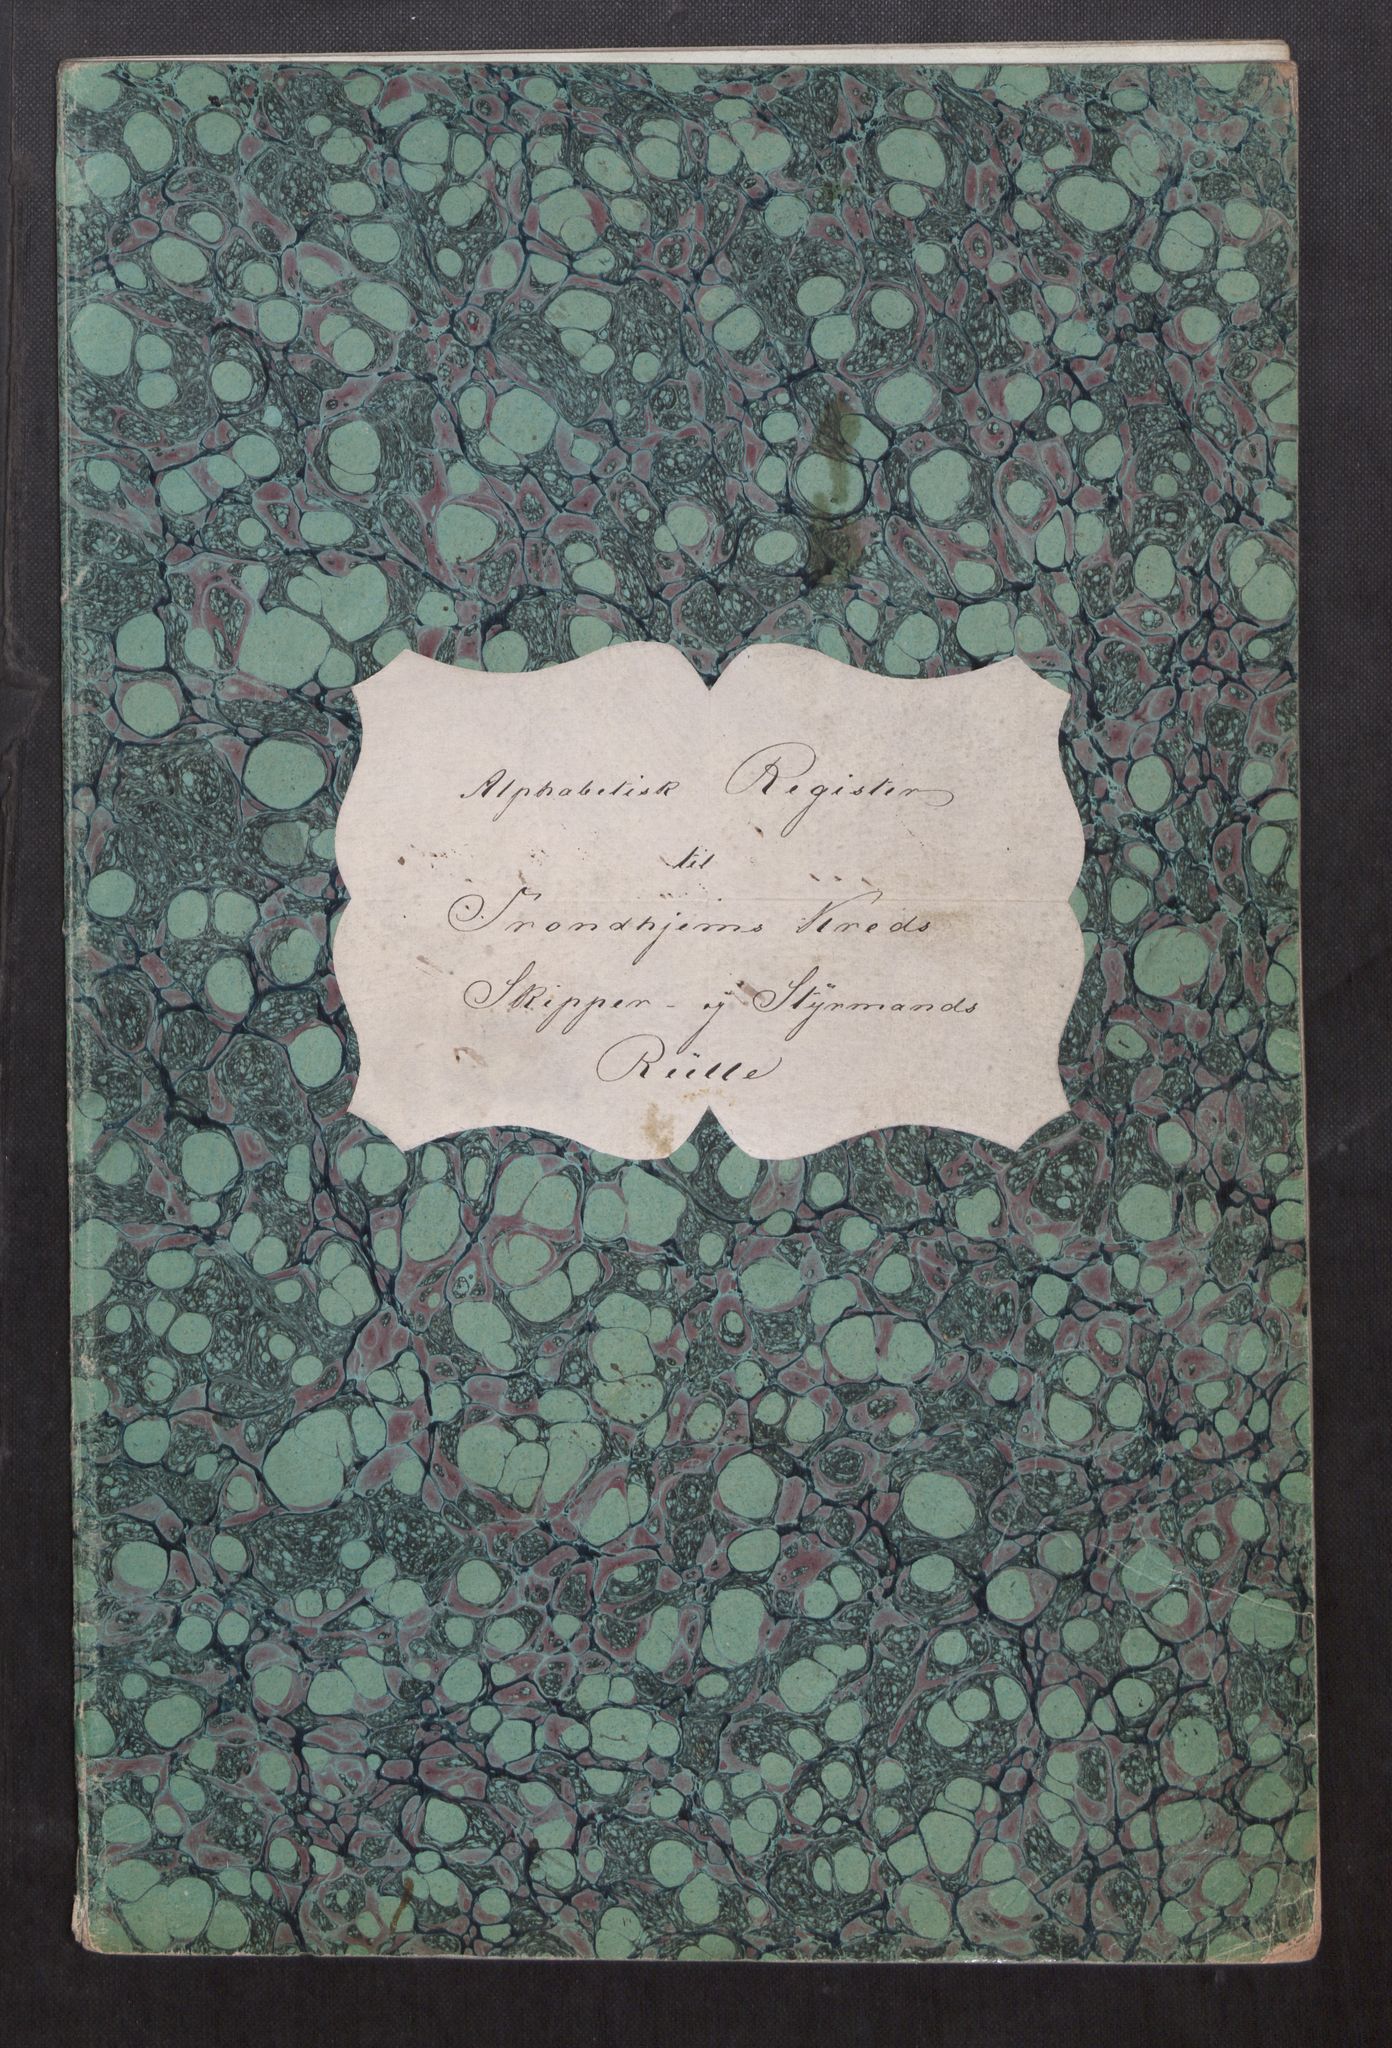 Alphabetisk Register
til
Trondhjems Kreds
Skipper- og Stÿrmands
Rülle